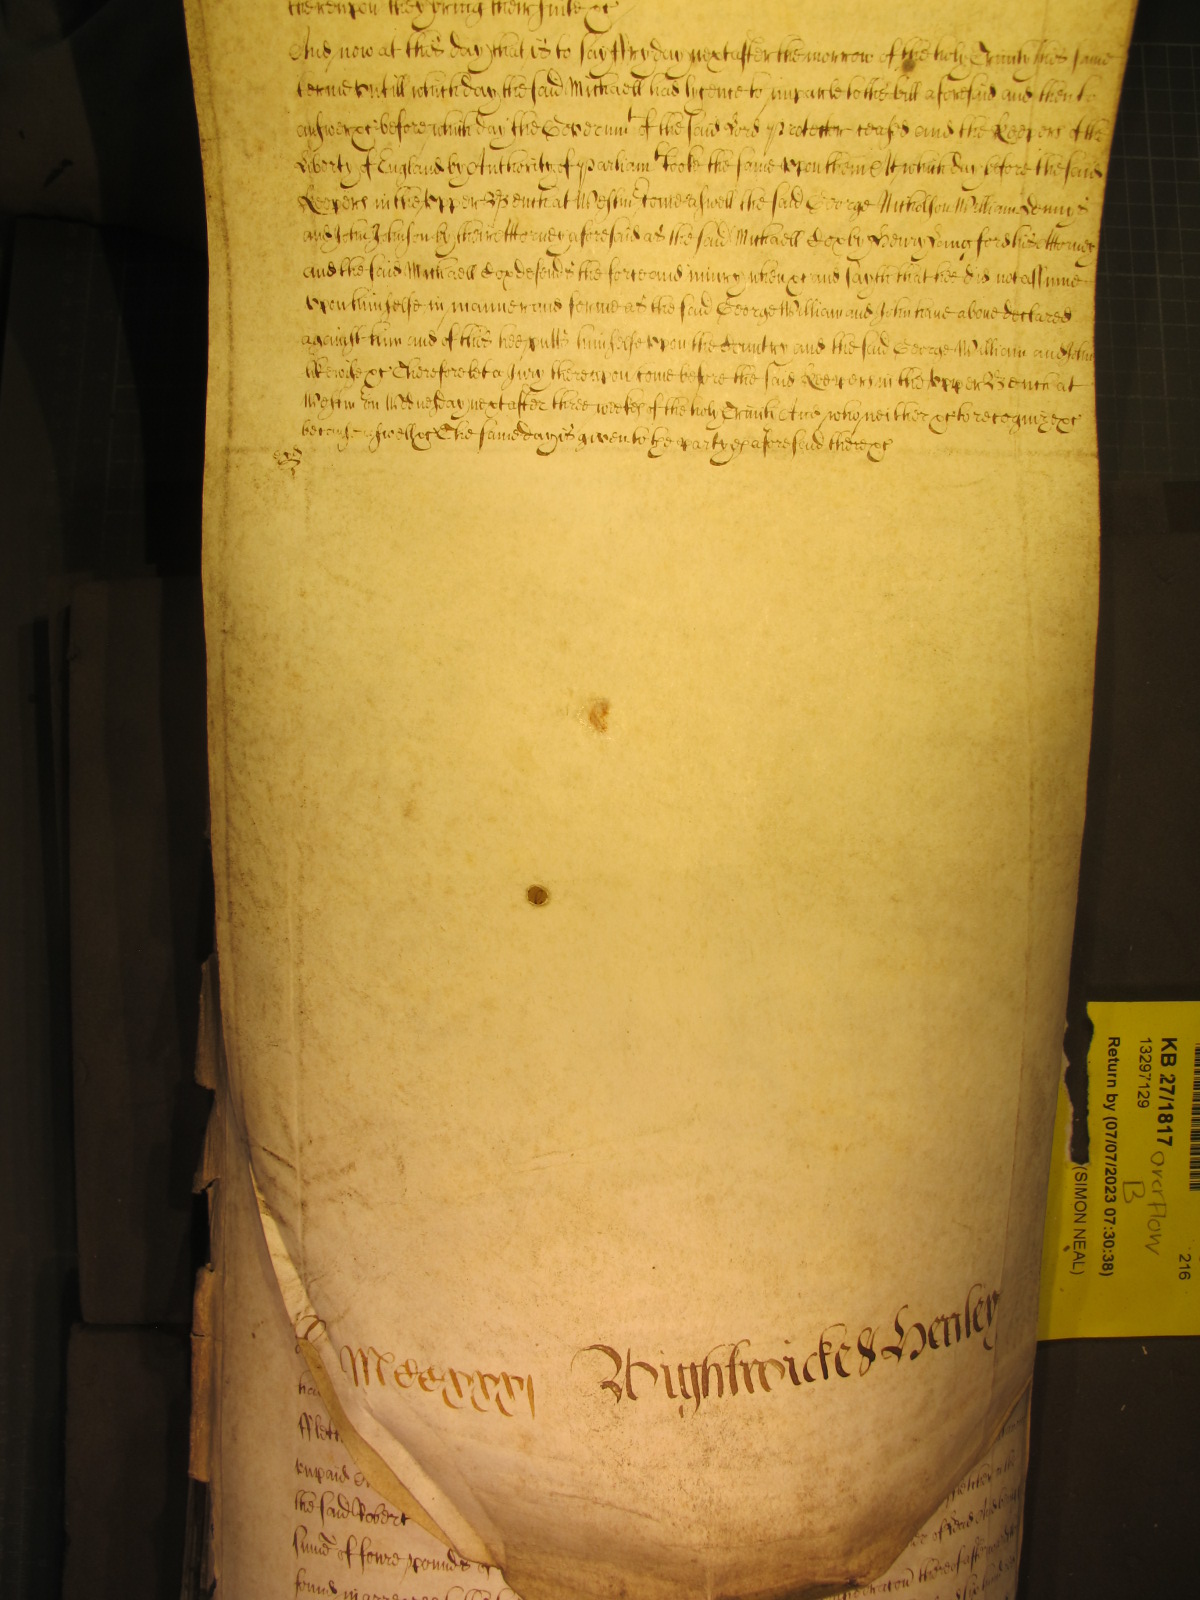 thereupon they bring their suite &c
And now at this day that is to say ffryday next after the morrow of the holy Trinity this same
terme untill which day the said Michaell had lycence to imparle to the bill aforesaid and then to
answer &c before which day the Governmt of the said Lord Protector ceased and the Keepers of the
Liberty of England by Authority of Parliamt tooke the same upon them At which day before the said
Keepers in the Upper Bench at Westm come aswell the said George Nicholson William Dennys
and John Johnson by their Attorney aforesaid as the said Michaell Cox by Henry Langford his Attorney
and the said Michaell Cox defends the force and iniury when &c and sayth that hee did not assume
upon himselfe in manner and forme as the said George William and John have above declared
against him and of this hee putts himselfe upon the Country and the said George William and John
likewise &c Therefore let a Jury thereupon come before the said Keepers in the Upper Bench at
Westm on Wednesday next after three weekes of the holy Trinity And who neither &c to recognize &c
because aswell &c The same day is given to the partyes aforesaid there &c
Mccxxxi Wightwicke & Henley
fflett
unpaid
the said Robert
summe of foure pounds
found in arreare
thereof
KB 27/1817 overflow
B
13297129
Return by (07/07/2023 07:30:38)
(SIMON NEAL)
216